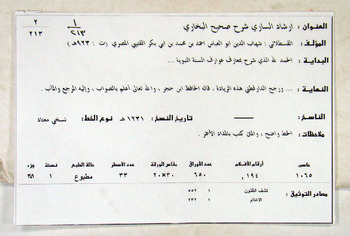 ٢
٢١٣
١
٢١٣
العنوان : ارشاد الساري شرح صحيح البخاري
المؤلف : القسطلاني : شهاب الدين ابو العباس احمد بن محمد بن ابي بكر القتيبي المصري ( ت : ٩٢٣هـ )
البداية : الحمد لله الذي شرح بمعارف عوارف السنة النبوية ...
النهاية : ... ورجح الدارقطني هذه الزيادة ، قاله الحافظ ابن حجر ، والله تعالى أعلم بالصواب ، وإليه المرجع والمآب .
الناسخ : تاريخ النسخ : ١٢٣١هـ نوع الخط : نسخي معتاد
ملاحظات : الخط واضح ، والمتن كتب بالمداد الأحمر .
حاسب أرقام الأفلام عدد الأوراق مقاس الورقة عدد الأسطر حالة الطبع نسخة جزء
١٠٦٥ ١٩٤ ٦٥٠ ٣٠×٢٠ ٣٣ مطبوع ١
مصادر التوثيق : كشف الظنون ١ ٥٥٢
الاعلام ١ ٢٣٢